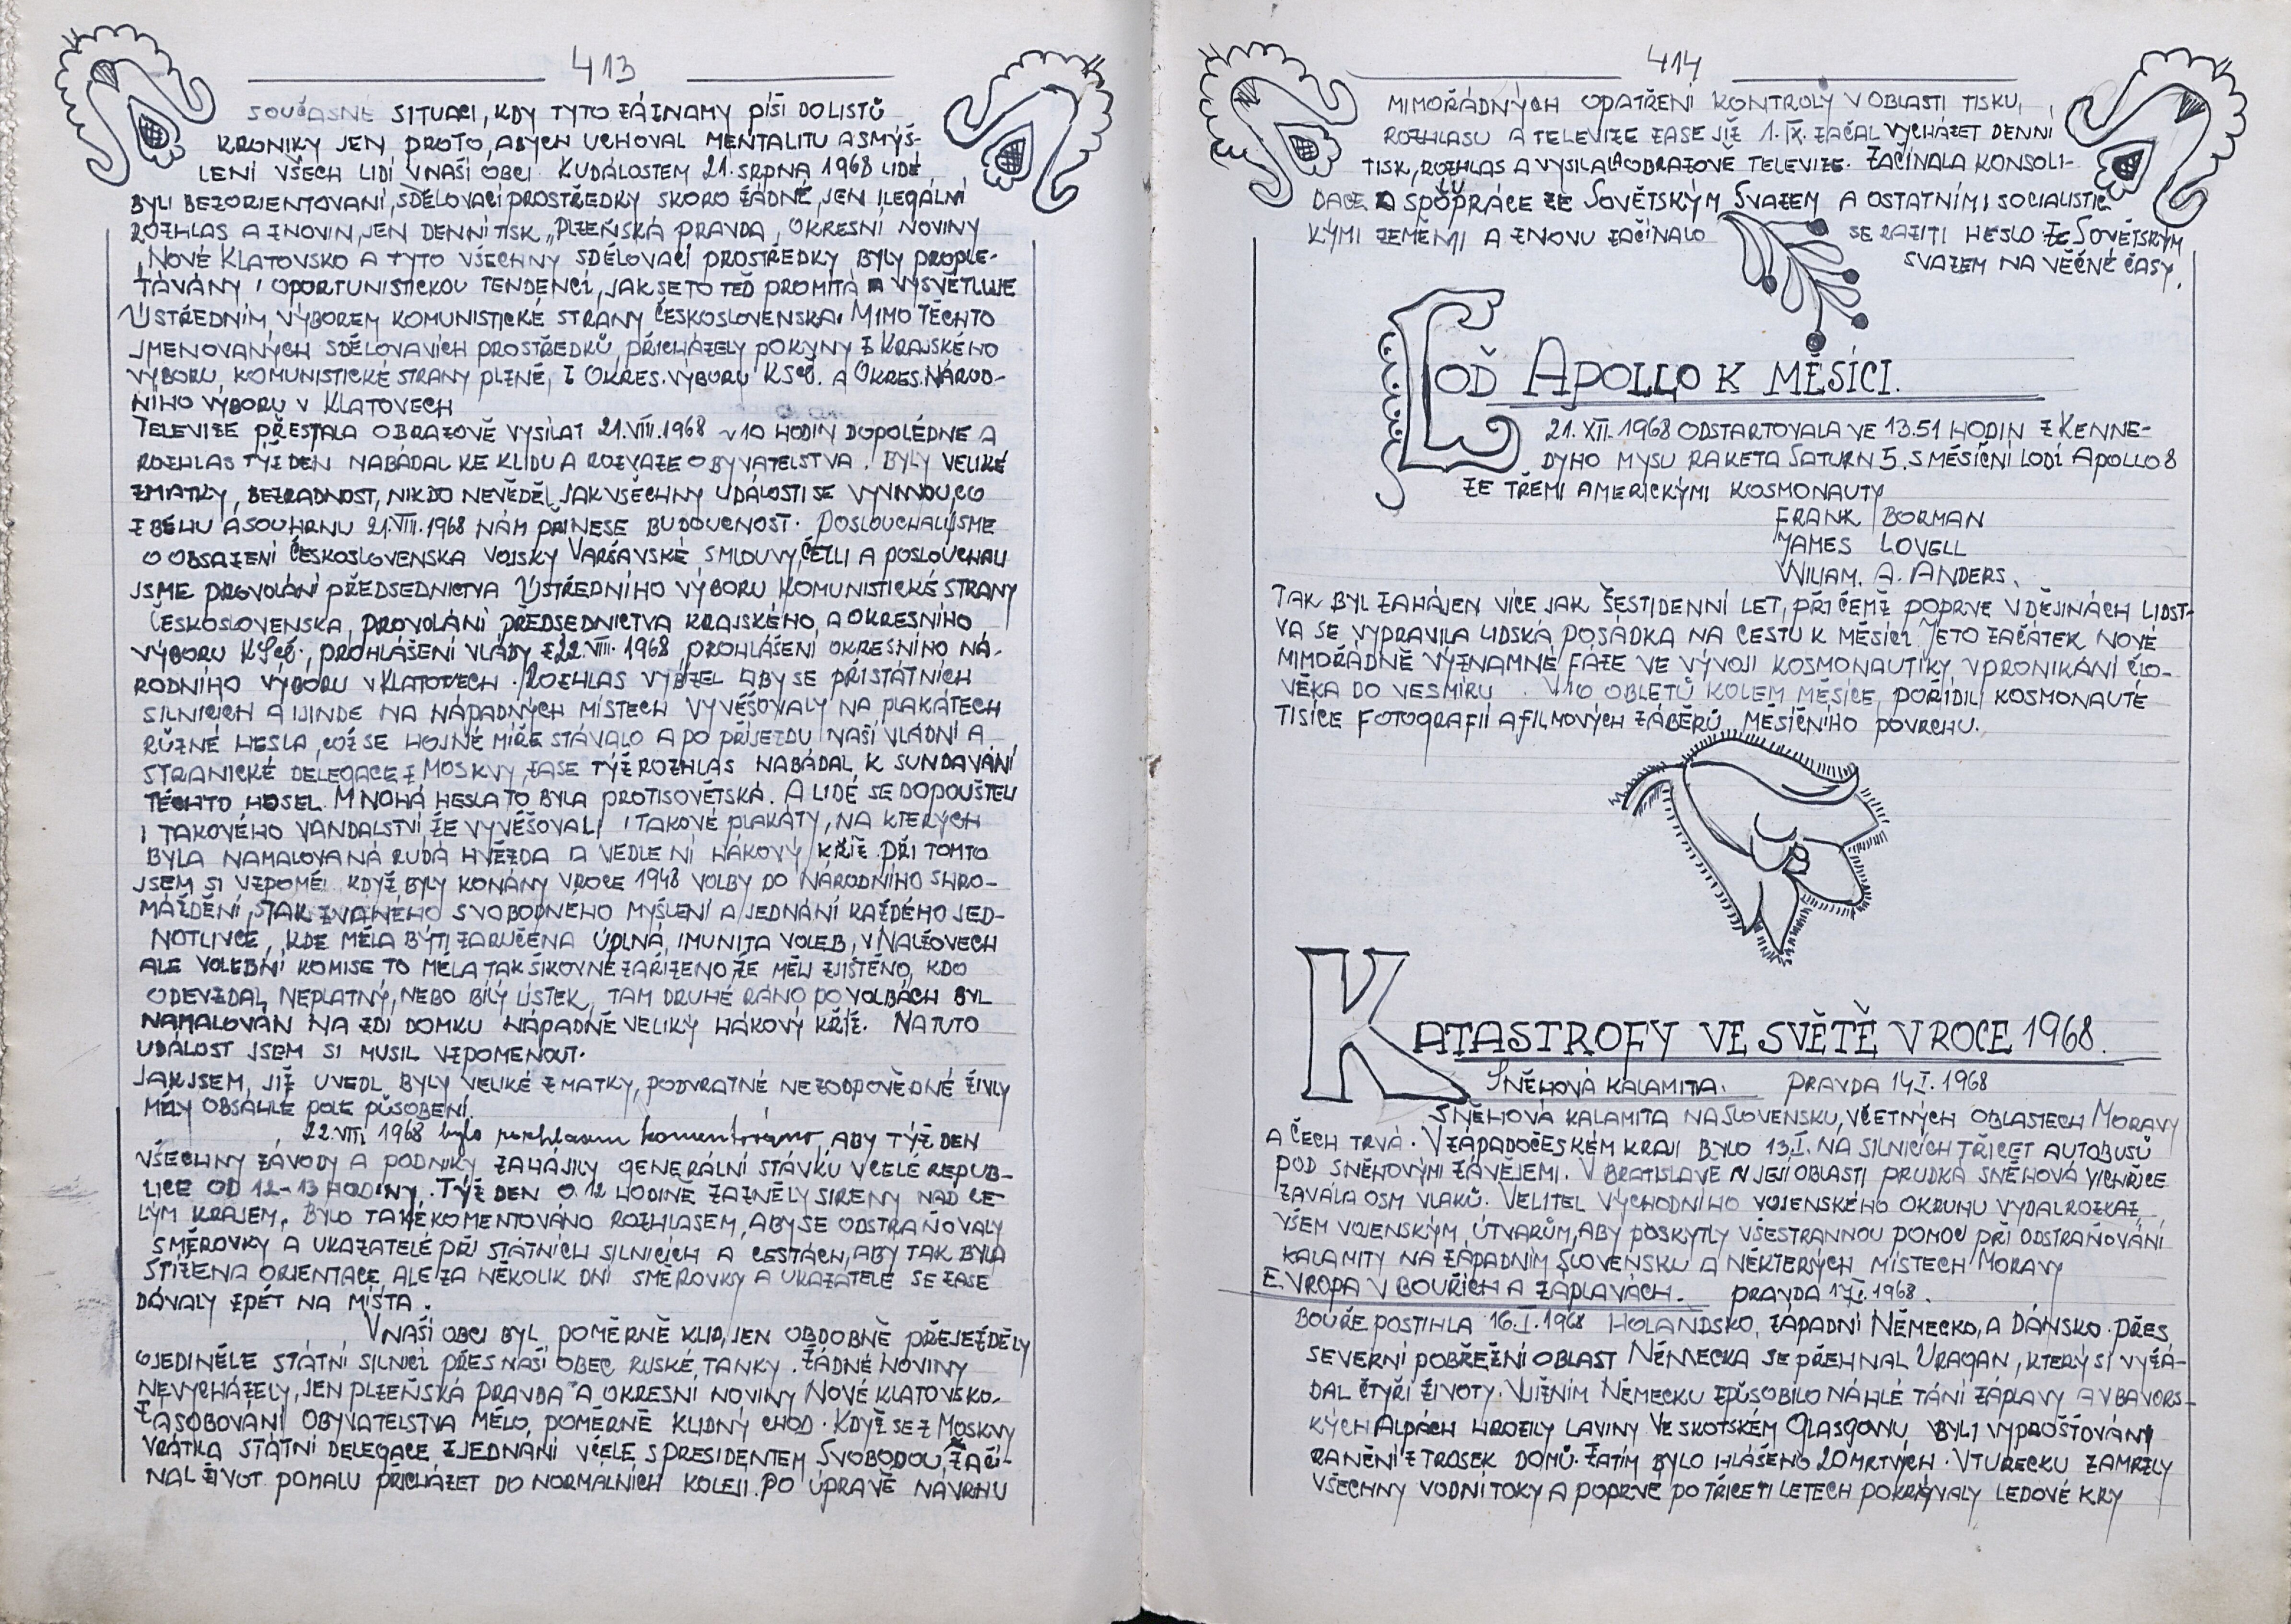 413
SOUČASNÉ SITUACI, KDY TYTO ZÁZNAMY PÍŠI DO LISTŮ
KRONIKY JEN PROTO, ABYCH UCHOVAL MENTALITU A SMÝŠ-
LENÍ VŠECH LIDÍ V NAŠÍ OBCI. K UDÁLOSTEM 21. SRPNA 1968 LIDÉ
BYLI BEZORIENTOVANÍ, SDĚLOVACÍ PROSTŘEDKY SKORO ŽÁDNÉ, JEN ILEGÁLNÍ
ROZHLAS A Z NOVIN, JEN DENNÍ TISK „PLZEŇSKÁ PRAVDA, OKRESNÍ NOVINY
NOVÉ KLATOVSKO A TYTO VŠECHNY SDĚLOVACÍ PROSTŘEDKY BYLY PROPLE-
TÁVÁNY I OPORTUNISTICKOU TENDENCÍ, JAK SE TO TEĎ PROMÍTÁ A VYSVĚTLUJE
ÚSTŘEDNÍM VÝBOREM KOMUNISTICKÉ STRANY ČESKOSLOVENSKA. MIMO TĚCHTO
JMENOVANÝCH SDĚLOVAVÍCH PROSTŘEDKŮ, PŘICHÁZELY POKYNY Z KRAJSKÉHO
VÝBORU KOMUNISTICKÉ STRANY PLZNĚ, Z OKRES. VÝBORU KSČ. A OKRES. NÁROD-
NÍHO VÝBORU V KLATOVECH
TELEVIZE PŘESTALA OBRAZOVĚ VYSÍLAT 21. VIII. 1968 V 10 HODIN DOPOLEDNE A
ROZHLAS TÝŽ DEN NABÁDAL KE KLIDU A ROZVAZE OBYVATELSTVA. BYLY VELIKÉ
ZMATKY, BEZRADNOST, NIKDO NEVĚDĚL, JAK VŠECHNY UDÁLOSTI SE VYVINOU, CO
Z BĚHU A SOUHRNU 21. VIII. 1968 NÁM PŘINESE BUDOUCNOST. POSLOUCHALI JSME
O OBSAZENÍ ČESKOSLOVENSKA VOJSKY VARŠAVSKÉ SMLOUVY, ČETLI A POSLOUCHALI
JSME PROVOLÁNÍ PŘEDSEDNICTVA ÚSTŘEDNÍHO VÝBORU KOMUNISTICKÉ STRANY
ČESKOSLOVENSKA, PROVOLÁNÍ PŘEDSEDNICTVA KRAJSKÉHO A OKRESNÍHO
VÝBORU KSČ., PROHLÁŠENÍ VLÁDY Z 22. VIII. 1968, PROHLÁŠENÍ OKRESNÍHO NÁ-
RODNÍHO VÝBORU V KLATOVECH. ROZHLAS VYBÍZEL ABY SE PŘI STÁTNÍCH
SILNICÍCH A I JINDE NA NÁPADNÝCH MÍSTECH VYVĚŠOVALY NA PLAKÁTECH
RŮZNÉ HESLA, COŽ SE HOJNÉ MÍŘE STÁVALO A PO PŘÍJEZDU NAŠÍ VLÁDNÍ A
STRANICKÉ DELEGACE Z MOSKVY ZASE TÝŽ ROZHLAS NABÁDAL K SUNDAVÁNÍ
TĚCHTO HESEL. MNOHÁ HESLA TO BYLA PROTISOVĚTSKÁ. A LIDÉ SE DOPOUŠTELI
I TAKOVÉHO VANDALSTVÍ ŽE VYVĚŠOVALI I TAKOVÉ PLAKÁTY, NA KTERÝCH
BYLA NAMALOVANÁ RUDÁ HVĚZDA A VEDLE NÍ HÁKOVÝ KŘÍŽ. PŘI TOMTO
JSEM SI VZPOMĚL KDYŽ BYLY KONÁNY V ROCE 1948 VOLBY DO NÁRODNÍHO SHRO-
MÁŽDĚNÍ, S TAK ZVANÉHO SVOBODNÉHO MYŠLENÍ A JEDNÁNÍ KAŽDÉHO JED-
NOTLIVCE, KDE MĚLA BÝTI ZARUČENA ÚPLNÁ IMUNITA VOLEB, V NALŽOVECH
ALE VOLEBNÍ KOMISE TO MĚLA TAK ŠIKOVNĚ ZAŘÍZENO, ŽE MĚLI ZJIŠTĚNO, KDO
ODEVZDAL NEPLATNÝ, NEBO BÍLÝ LÍSTEK, TAM DRUHÉ RÁNO PO VOLBÁCH BYL
NAMALOVÁN NA ZDI DOMKU NÁPADNĚ VELIKÝ HÁKOVÝ KŘÍŽ. NA TUTO
UDÁLOST JSEM SI MUSIL VZPOMENOUT.
JAK JSEM JIŽ UVEDL BYLY VELIKÉ ZMATKY, PODVRATNÉ NEZODPOVĚDNÉ ŽIVLY
MĚLY OBSÁHLÉ POLE PŮSOBENÍ.
22. VIII. 1968 bylo rozhlasem komentováno, ABY TÝŽ DEN
VŠECHNY ZÁVODY A PODNIKY ZAHÁJILY GENERÁLNÍ STÁVKU V CELÉ REPUB-
LICE OD 12-13 HODINY. TÝŽ DEN O 12 HODINĚ ZAZNĚLY SIRENY NAD CE-
LÝM KRAJEM. BYLO TAKÉ KOMENTOVÁNO ROZHLASEM, ABY SE ODSTRAŇOVALY
SMĚROVKY A UKAZATELÉ PŘI STÁTNÍCH SILNICÍCH A CESTÁCH, ABY TAK BYLA
STÍŽENA ORIENTACE, ALE ZA NĚKOLIK DNÍ SMĚROVKY A UKAZATELÉ SE ZASE
DÁVALY ZPĚT NA MÍSTA.
V NAŠÍ OBCI BYL POMĚRNĚ KLID, JEN OBDOBNĚ PŘEJEŽDĚLY
OJEDINĚLE STÁTNÍ SILNICÍ PŘES NAŠÍ OBEC RUSKÉ TANKY. ŽÁDNÉ NOVINY
NEVYCHÁZELY, JEN PLZEŇSKÁ PRAVDA A OKRESNÍ NOVINY NOVÉ KLATOVSKO.
ZÁSOBOVÁNÍ OBYVATELSTVA MĚLO POMĚRNĚ KLIDNÝ CHOD. KDYŽ SE Z MOSKVY
VRÁTILA STÁTNÍ DELEGACE Z JEDNÁNÍ V ČELE S PRESIDENTEM SVOBODOU, ZAČÍ-
NAL ŽIVOT POMALU PŘICHÁZET DO NORMÁLNÍCH KOLEJÍ. PO ÚPRAVĚ NÁVRHU
414
MIMOŘÁDNÝCH OPATŘENÍ KONTROLY V OBLASTI TISKU,
ROZHLASU A TELEVIZE ZASE JIŽ 1. IX. ZAČAL VYCHÁZET DENNÍ
TISK, ROZHLAS A VYSÍLALA OBRAZOVĚ TELEVIZE. ZAČÍNALA KONSOLI-
DACE A SPOLUPRÁCE ZE SOVĚTSKÝM SVAZEM A OSTATNÍMI SOCIALISTIC-
KÝMI ZEMĚMI A ZNOVU ZAČÍNALO SE RAZITI HESLO ZE SOVĚTSKÝM
SVAZEM NA VĚČNÉ ČASY.
LOĎ APOLLO K MĚSÍCI.
21. XII. 1968 ODSTARTOVALA VE 13.51 HODIN Z KENNE-
DYHO MYSU RAKETA SATURN 5. S MĚSÍČNÍ LODÍ APOLLO 8
ZE TŘEMI AMERICKÝMI KOSMONAUTY
FRANK BORMAN
JAMES LOVELL
WILIAM. A. ANDERS.
TAK BYL ZAHÁJEN VÍCE JAK ŠESTIDENNÍ LET, PŘIČEMŽ POPRVE V DĚJINÁCH LIDST-
VA SE VYPRAVILA LIDSKÁ POSÁDKA NA CESTU K MĚSÍCI. JE TO ZAČÁTEK NOVÉ
MIMOŘÁDNĚ VÝZNAMNÉ FÁZE VE VÝVOJI KOSMONAUTIKY V PRONIKÁNÍ ČLO-
VĚKA DO VESMÍRU. V 10 OBLETŮ KOLEM MĚSÍCE, POŘÍDILI KOSMONAUTÉ
TISÍCE FOTOGRAFIÍ A FILMOVÝCH ZÁBĚRŮ MĚSÍČNÍHO POVRCHU.
KATASTROFY VE SVĚTĚ V ROCE 1968.
SNĚHOVÁ KALAMITA. PRAVDA 14. I. 1968
SNĚHOVÁ KALAMITA NA SLOVENSKU, VČETNÝCH OBLASTECH MORAVY
A ČECH TRVÁ. V ZÁPADOČESKÉM KRAJI BYLO 13. I. NA SILNICÍCH TŘICET AUTOBUSŮ
POD SNĚHOVÝMI ZÁVĚJEMI. V BRATISLAVE V JEJÍ OBLASTI PRUDKÁ SNĚHOVÁ VICHŘICE
ZAVÁLA OSM VLAKŮ. VELITEL VÝCHODNÍHO VOJENSKÉHO OKRUHU VYDAL ROZKAZ
VŠEM VOJENSKÝM ÚTVARŮM, ABY POSKYTLY VŠESTRANNOU POMOC PŘI ODSTRAŇOVÁNÍ
KALAMITY NA ZÁPADNÍM SLOVENSKU A NĚKTERÝCH MÍSTECH MORAVY
EVROPA V BOUŘÍCH A ZÁPLAVÁCH. PRAVDA 17. I. 1968.
BOUŘE POSTIHLA 16. I. 1968 HOLANDSKO, ZÁPADNÍ NĚMECKO, A DÁNSKO. PŘES
SEVERNÍ POBŘEŽNÍ OBLAST NĚMECKA SE PŘEHNAL URAGAN, KTERÝ SI VYŽÁ-
DAL ČTYŘI ŽIVOTY. V JIŽNÍM NĚMECKU ZPŮSOBILO NÁHLÉ TÁNÍ ZÁPLAVY A V BAVORS-
KÝCH ALPÁCH HROZILY LAVINY. VE SKOTSKÉM GLASGOWU BYLI VYPROŠŤOVÁNI
RANĚNÍ Z TROSEK DOMŮ. ZATÍM BYLO HLÁŠENO 20 MRTVÝCH. V TURECKU ZAMRZLY
VŠECHNY VODNÍ TOKY A POPRVÉ PO TŘICETI LETECH POKRÝVALY LEDOVÉ KRY